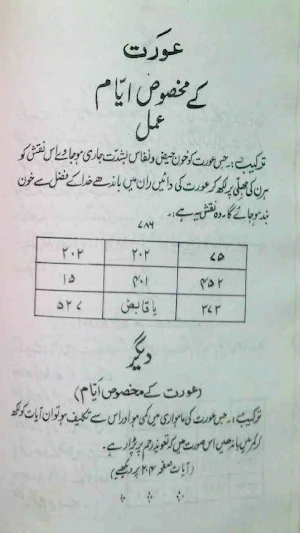 عورت
کے مخصوص ایّام
عمل
ترکیب:۔ جس عورت کو خون حیض و نفاس بشدّت جاری ہو جاوے اس نقش کو
ہرن کی جھلی پر لکھ کر عورت کی دائیں ران میں باندھے خدا کے فضل سے خون
بند ہو جائے گا۔ وہ نقش یہ ہے:۔
۷۸۶
۷۵ ۲۰۲ ۲۰۲
۴۵۲ ۴۰۱ ۱۵
۳۷۲ یا قابض ۵۲۷
دیگر
(عورت کے مخصوص ایّام)
ترکیب:۔ جس عورت کی ماہواری میں کمی ہو اور اس سے تکلیف ہو تو ان آیات کو لکھ
کر کمر میں باندھیں اس صورت میں کہ تعویذ رحم پر پڑا رہے۔
(آیات صفحہ ۲۰۴ پر دیکھیے)